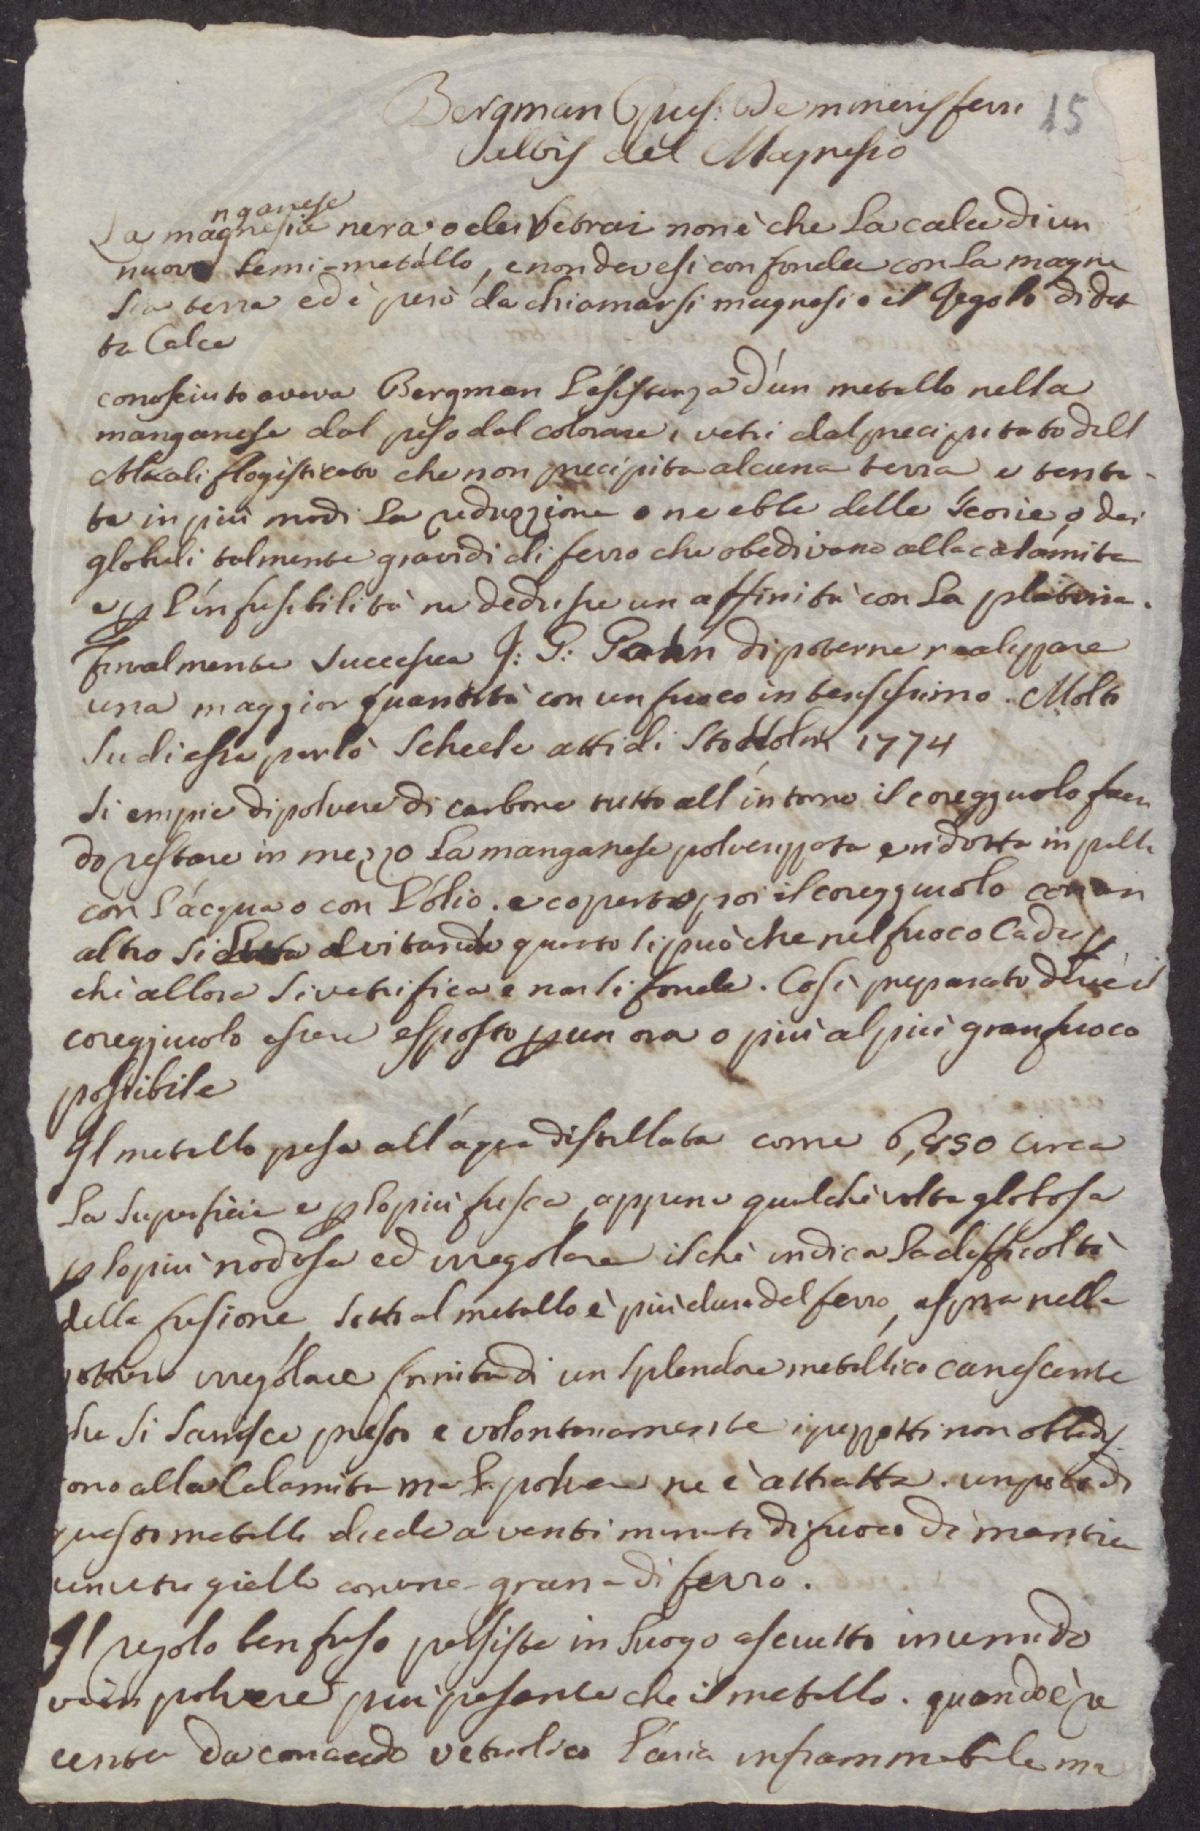 Bergman Opus: De mineris ferri 15
albis del Magnesio
nganese
La magnesia nera o dei Vetrai non è che La calce di un
nuovo Semi-metallo, e non devesi confonder con La magne
sia terra ed è però da chiamarsi magnesio il Regolo di det
ta Calce
conosciuto aveva Bergman L'esistenza d'un metallo nella
manganese dal peso dal colorare i vetri dal precipitato dell
Alkali flogisticato che non precipita alcuna terra e tenta
ta in più modi La reduzzione o ne ebbe delle scorie, o dei
globuli talmente gravidi di ferro che obedivano alla calamita
e p L'infusibilità ne dedusse un affinità con La platina.
Finalmente successea J: G: Gahn di poterne realizzare
una maggior quantità con un fuoco intensissimo. Molto
su di essa parlò Scheele atti di Stokolm 1774
Si empie di polvere di carbone tutto all'intorno il coregguolo facen
do restare in mezzo La manganese polverizzata e ridotta in palla
con L'acqua o con L'olio. e coperto poi il coregguolo con un
altro si Luta evitando quanto si può che nel fuoco Cada
chè allora si vetrifica e non si fonde. Così preparato deve il
coregguolo essere esposto p un ora o più al più gran fuoco
possibile
Il metallo pesa all'aqua distillata come 6,850 circa
La superficie e p lo più fusca, appena qualche volta globosa
p lo più nodosa ed irregolare il chè indica La difficoltà
della fusione, detto al metallo è più duro del ferro, aspra nella
rottura irregolare fornita di un splendore metallico canescente
che si svanisce presto e volontariamente i pezzetti non obbedis
cono alla Calamita ma La polvere ne è attratta. un poco di
questo metallo diede a venti minuti di fuoco di mantice
un vetro giallo con una grana di ferro.
Il regolo ben fuso persiste in Luogo asciutto in umido
và in polvere più pesante che il metallo. quando è re
cente da con acido vetriolico L'aria infiammabile ma